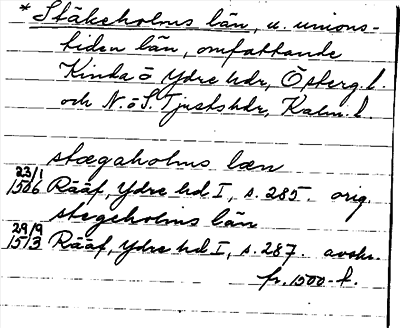 * Stäkeholms län, u. unions-
tiden län, omfattande
Kinda o Ydre hdr, Österg. l.
och N. o S. Tjusts hdr, Kalm. l.
stægaholms læn
23/1 1506 Rääf, Ydre hd I, s. 285. orig.
stegeholms län
29/9 1513 Rääf, Ydre hd I, s. 287. avskr.
fr. 1500-t.